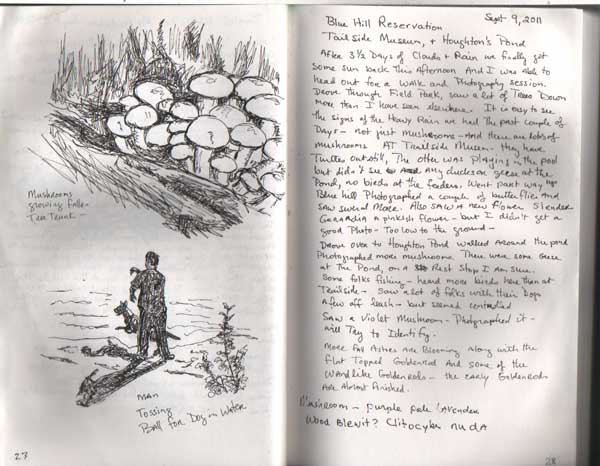 Mushrooms
growing fallen
Tree Trunk
MAN
Tossing
Ball for Dog in Water
27
Sept 9, 2011
Blue Hill Reservation
Trailside Museum, + Houghton's Pond
After 3½ Days of Clouds + Rain we finally got
some sun back This Afternoon And I was Able to
head out for a walk and Photography session.
Drove Through Field Park, saw a lot of Trees Down
more than I have seen elsewhere. It is easy to see
the signs of the Heavy Rain we had The past couple of
Days - not just mushrooms - And There are lots of
mushrooms AT Trailside Museum - they have
Turtles out still, The otter was Playing in the pool
but didn't see any ducks or geese at the
Pond, no birds at the feeders. Went part way up
Blue hill Photographed a couple of butterflies And
Saw several More. Also SAW A new flower Slender
Gerardia a pinkish flower - but I didn't get a
good Photo - Too low to the ground -
Drove over to Houghton Pond walked Around the pond
Photographed more mushrooms There were some Geese
at The Pond, on a Rest Stop I Am Sure.
Some folks fishing - heard more birds here than at
Trailside - Saw a lot of folks with their Dogs
A few off leash - but seemed controlled
Saw a Violet Mushroom - Photographed it -
will Try to Identify.
More Fall Asters Are Blooming Along with the
Flat Topped Goldenrod And some of the
Wandlike Goldenrods - the early Goldenrods
Are Almost finished.
Mushroom - purple pale lavender
Wood Blewit? Clitocybe nuda
28